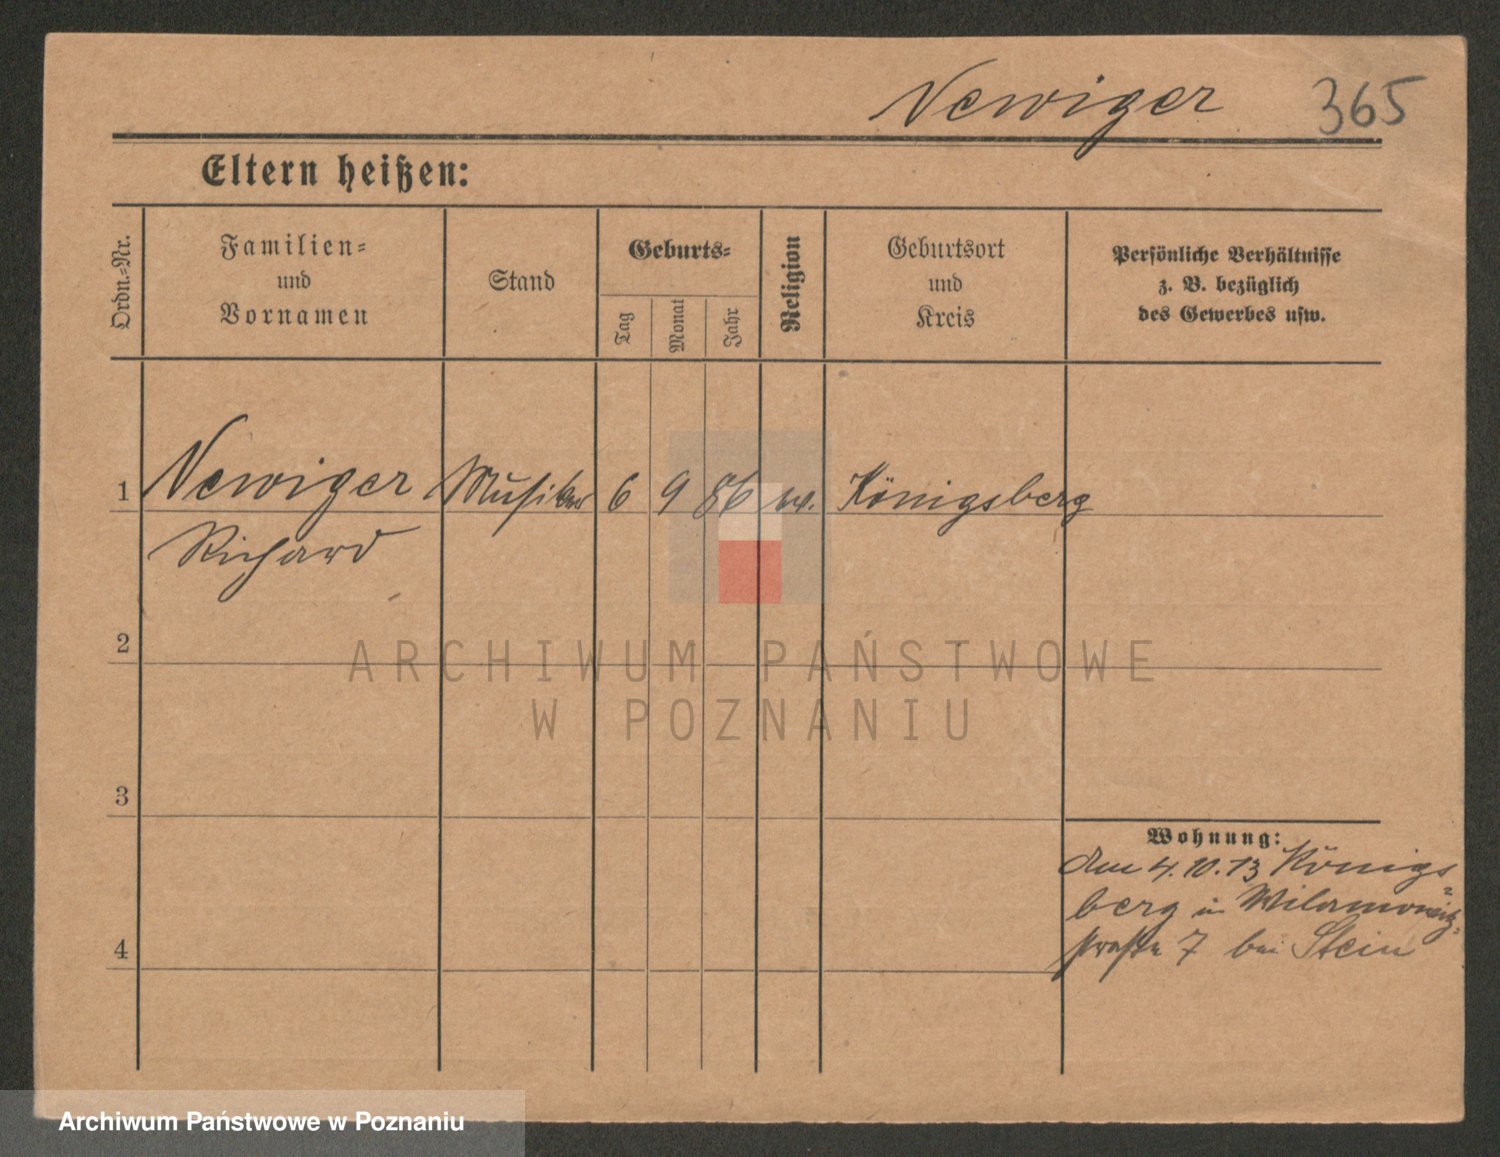 Newiger 365
Eltern heißen:
Ordn.-Nr.
Familien-
und
Vornamen
Stand
Geburts-
Tag
Monat
Jahr
Religion
Geburtsort
und
Kreis
Persönliche Verhältnisse
z. B. bezüglich
des Gewerbes usw.
1 Newiger Musiker 6 9 86 Königsberg
Richard
2
ARCHIWUM PAŃSTWOWE
W POZNANIU
3
Wohnung:
4.10.13 Königs
berg in
4
straße 7 bei Stein
Archiwum Państwowe w Poznaniu